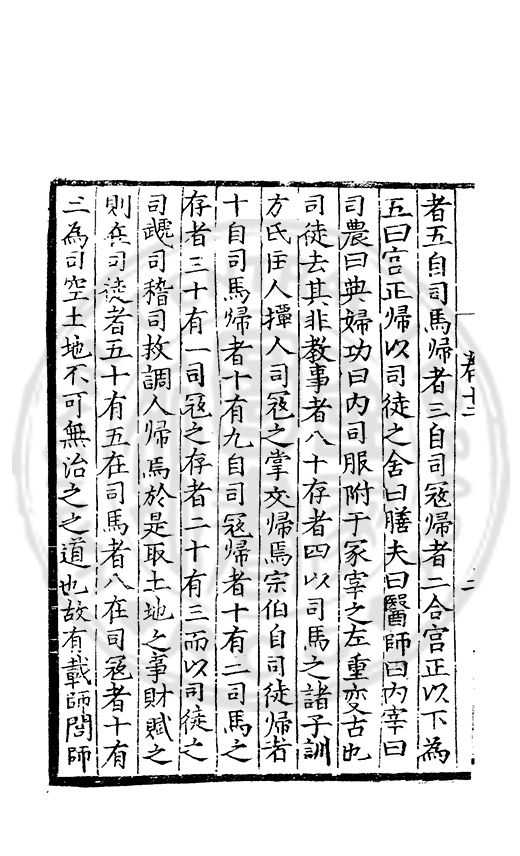 卷十
者五自司馬歸者三自司冦歸者二合宫正以下為
五曰宫正歸以司徒之舍曰膳夫曰醫師曰內宰曰
司農曰典婦功曰內司服附于冢宰之左重变古也
司徒去其非教事者八十存者四以司馬之諸子訓
方氏匡人撢人司冦之掌交歸焉宗伯自司徒歸者
十自司馬歸者十有九自司冦歸者十有二司馬之
存者三十有一司冦之存者二十有三而以司徒之
司虣司稽司救調人歸焉於是取土地之事財賦之
則兵司徒者五十有五在司馬者八在司冦者十有
二為司空土地不可無治之之道也故有載師閭師